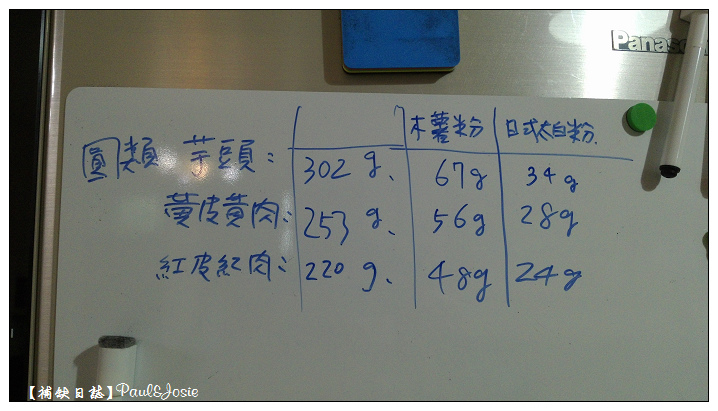 Panaso
木薯粉 日式太白粉.
圓類 芋頭: 302 g. 67g 34g
黃皮黃肉: 253 g. 56g 28g
紅皮紅肉: 220 g. 48g 24g
【補缺日誌】Paul&Josie